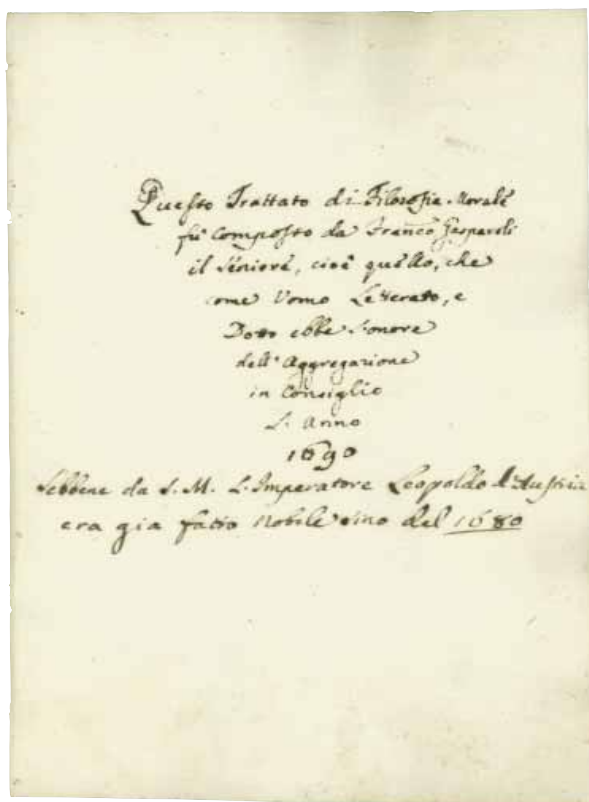 Questo Trattato di Filosofia Morale
fù Composto da Franco Gasparoli
il Seniore, cioè quello, che
come Uomo Letterato, e
Dotto ebbe l'onore
dell'Aggregazione
in Consiglio
L'Anno
1690
Sebbene da S. M. L'Imperatore Leopoldo d'Austria
era già fatto Nobile sino del 1680